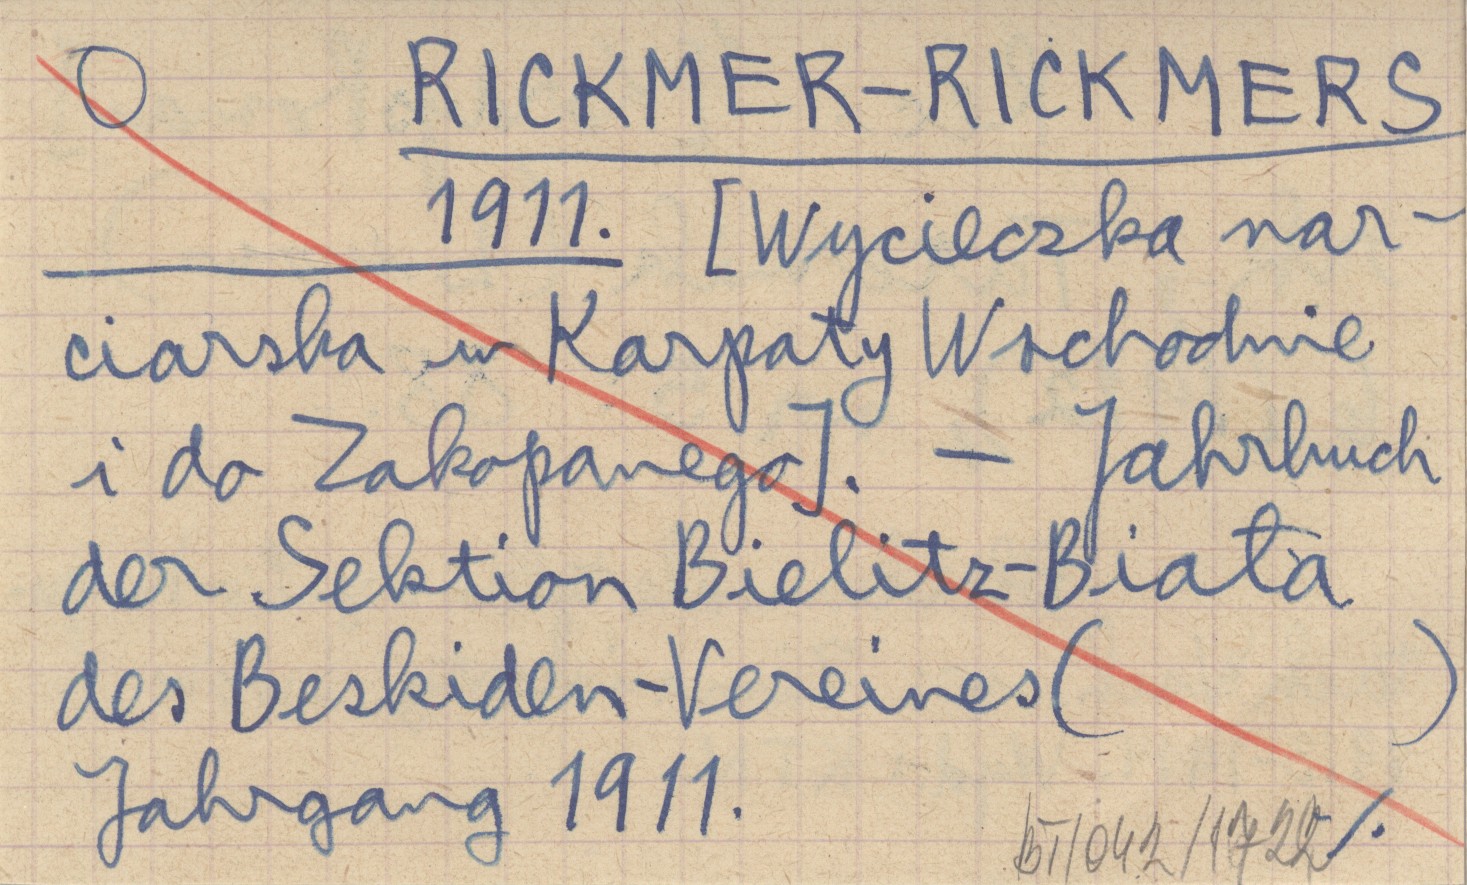 O RICKMER-RICKMERS
1911. [Wycieczka nar-
ciarska w Karpaty Wschodnie
i do Zakopanego]. — Jahrbuch
der Sektion Bielitz-Biała
des Beskiden-Vereines (      )
Jahrgang 1911.
/.